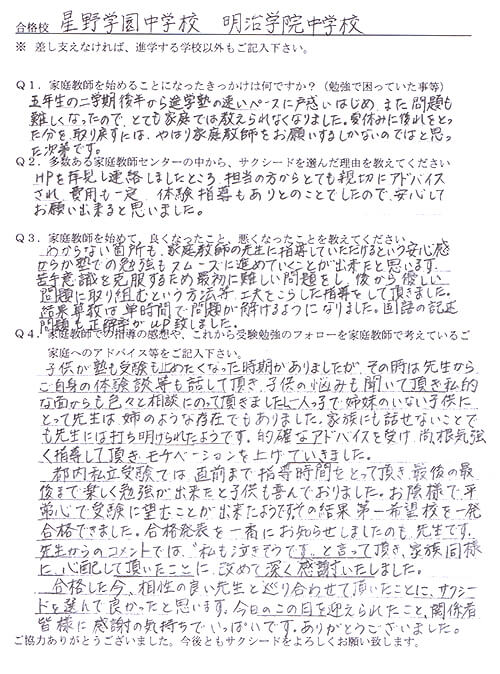 合格校 星野学園中学校 明治学院中学校
※ 差し支えなければ、進学する学校以外もご記入下さい。
Q1．家庭教師を始めることになったきっかけは何ですか？（勉強で困っていた事等）
五年生の二学期後半から進学塾の速いペースに戸惑いはじめ、また問題も
難しくなったので、とても家庭では教えられなくなりました。夏休みに後れをとっ
た分を取り戻すには、やはり家庭教師をお願いするしかないのではと思っ
た次第です。
Q2．多数ある家庭教師センターの中から、サクシードを選んだ理由を教えてください
HPを拝見し連絡しましたところ、担当の方からとても親切にアドバイス
され、費用も一定、体験指導もありとのことでしたので、安心して
お願い出来ると思いました。
Q3．家庭教師を始めて、良くなったこと、悪くなったことを教えてください
わからない箇所も、家庭教師の先生に指導していただけるという安心感
からか塾での勉強もスムーズに進めていくことが出来たと思います。
苦手意識を克服するため最初に難しい問題をし、後から優しい
問題に取り組むという方法等、工夫をこらした指導をして頂きました。
結果算数は短時間で問題が解けるようになりました。国語の記述
問題も正解率がUP致しました。
Q4．家庭教師での指導の感想や、これから受験勉強のフォローを家庭教師で考えているご
家庭へのアドバイス等をご記入下さい。
子供が塾も受験も止めたくなった時期がありましたが、その時は先生から
ご自身の体験談等も話して頂き、子供の悩みも聞いて頂き私的
な面からも色々と相談にのって頂きました。一人っ子で姉妹のいない子供に
とって先生は姉のような存在でもありました。家族にも話せないことで
も先生には打ち明けられたようです。的確なアドバイスを受け、尚根気強
く指導して頂き、モチベーションを上げていきました。
都内私立受験では、直前まで指導時間をとって頂き、最後の最
後まで楽しく勉強が出来たと子供も喜んでおりました。お陰様で、平
常心で受験に望むことが出来たようですその結果第一希望校を一発
合格できました。合格発表を一番にお知らせしましたのも、先生です。
先生からのコメントでは、"私も泣きそうです"と言って頂き、家族同様
に心配して頂いたことに、改めて深く感謝いたしました。
合格した今、相性の良い先生と巡り合わせて頂いたことに、サクシー
ドを選んで良かったと思います。今日のこの日を迎えられたこと、関係者
皆様に感謝の気持ちでいっぱいです。ありがとうございました。
ご協力ありがとうございました。今後ともサクシードをよろしくお願い致します。